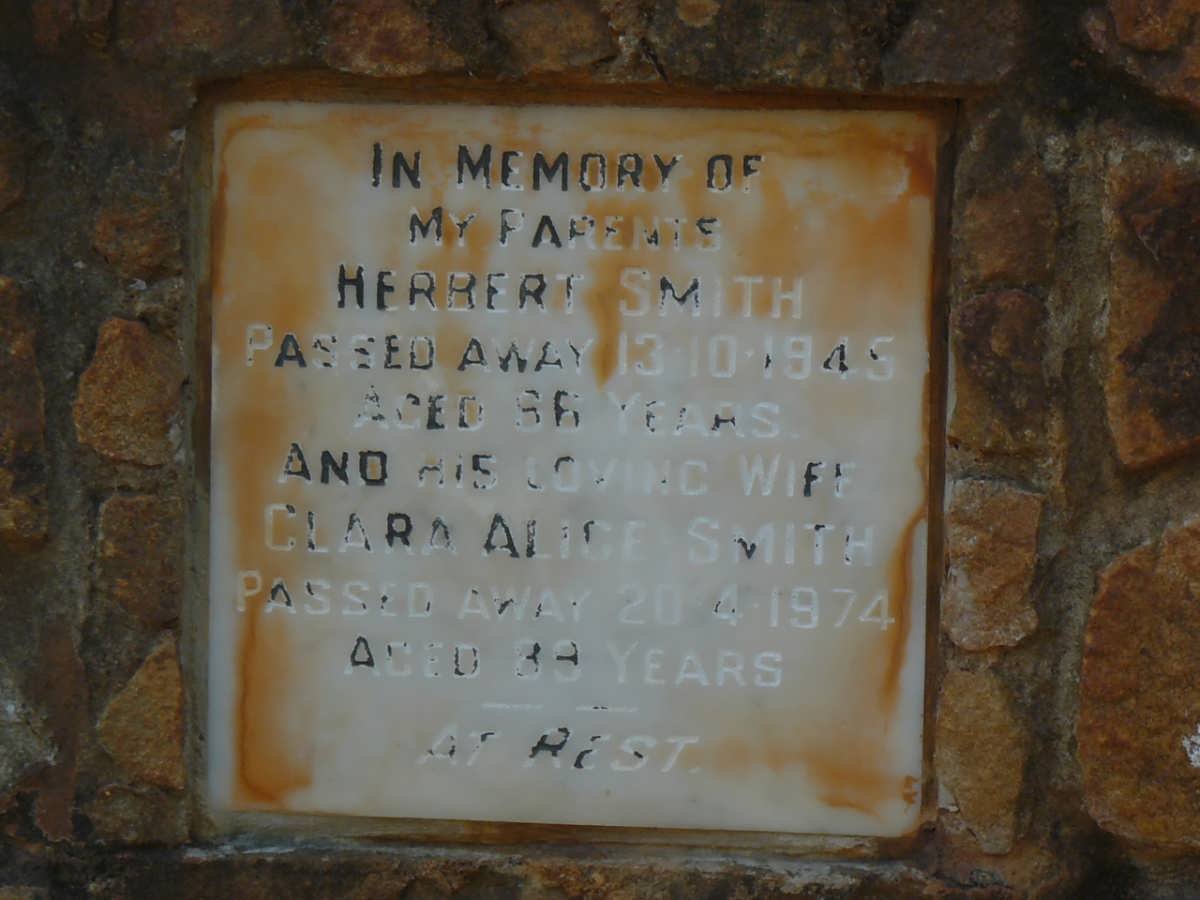 In Memory of
My Parents
Herbert Smith
Passed away 13·10·1945
Aged 66 Years.
And his loving Wife
Clara Alice Smith
Passed away 20·4·1974
Aged 89 Years
At Rest.